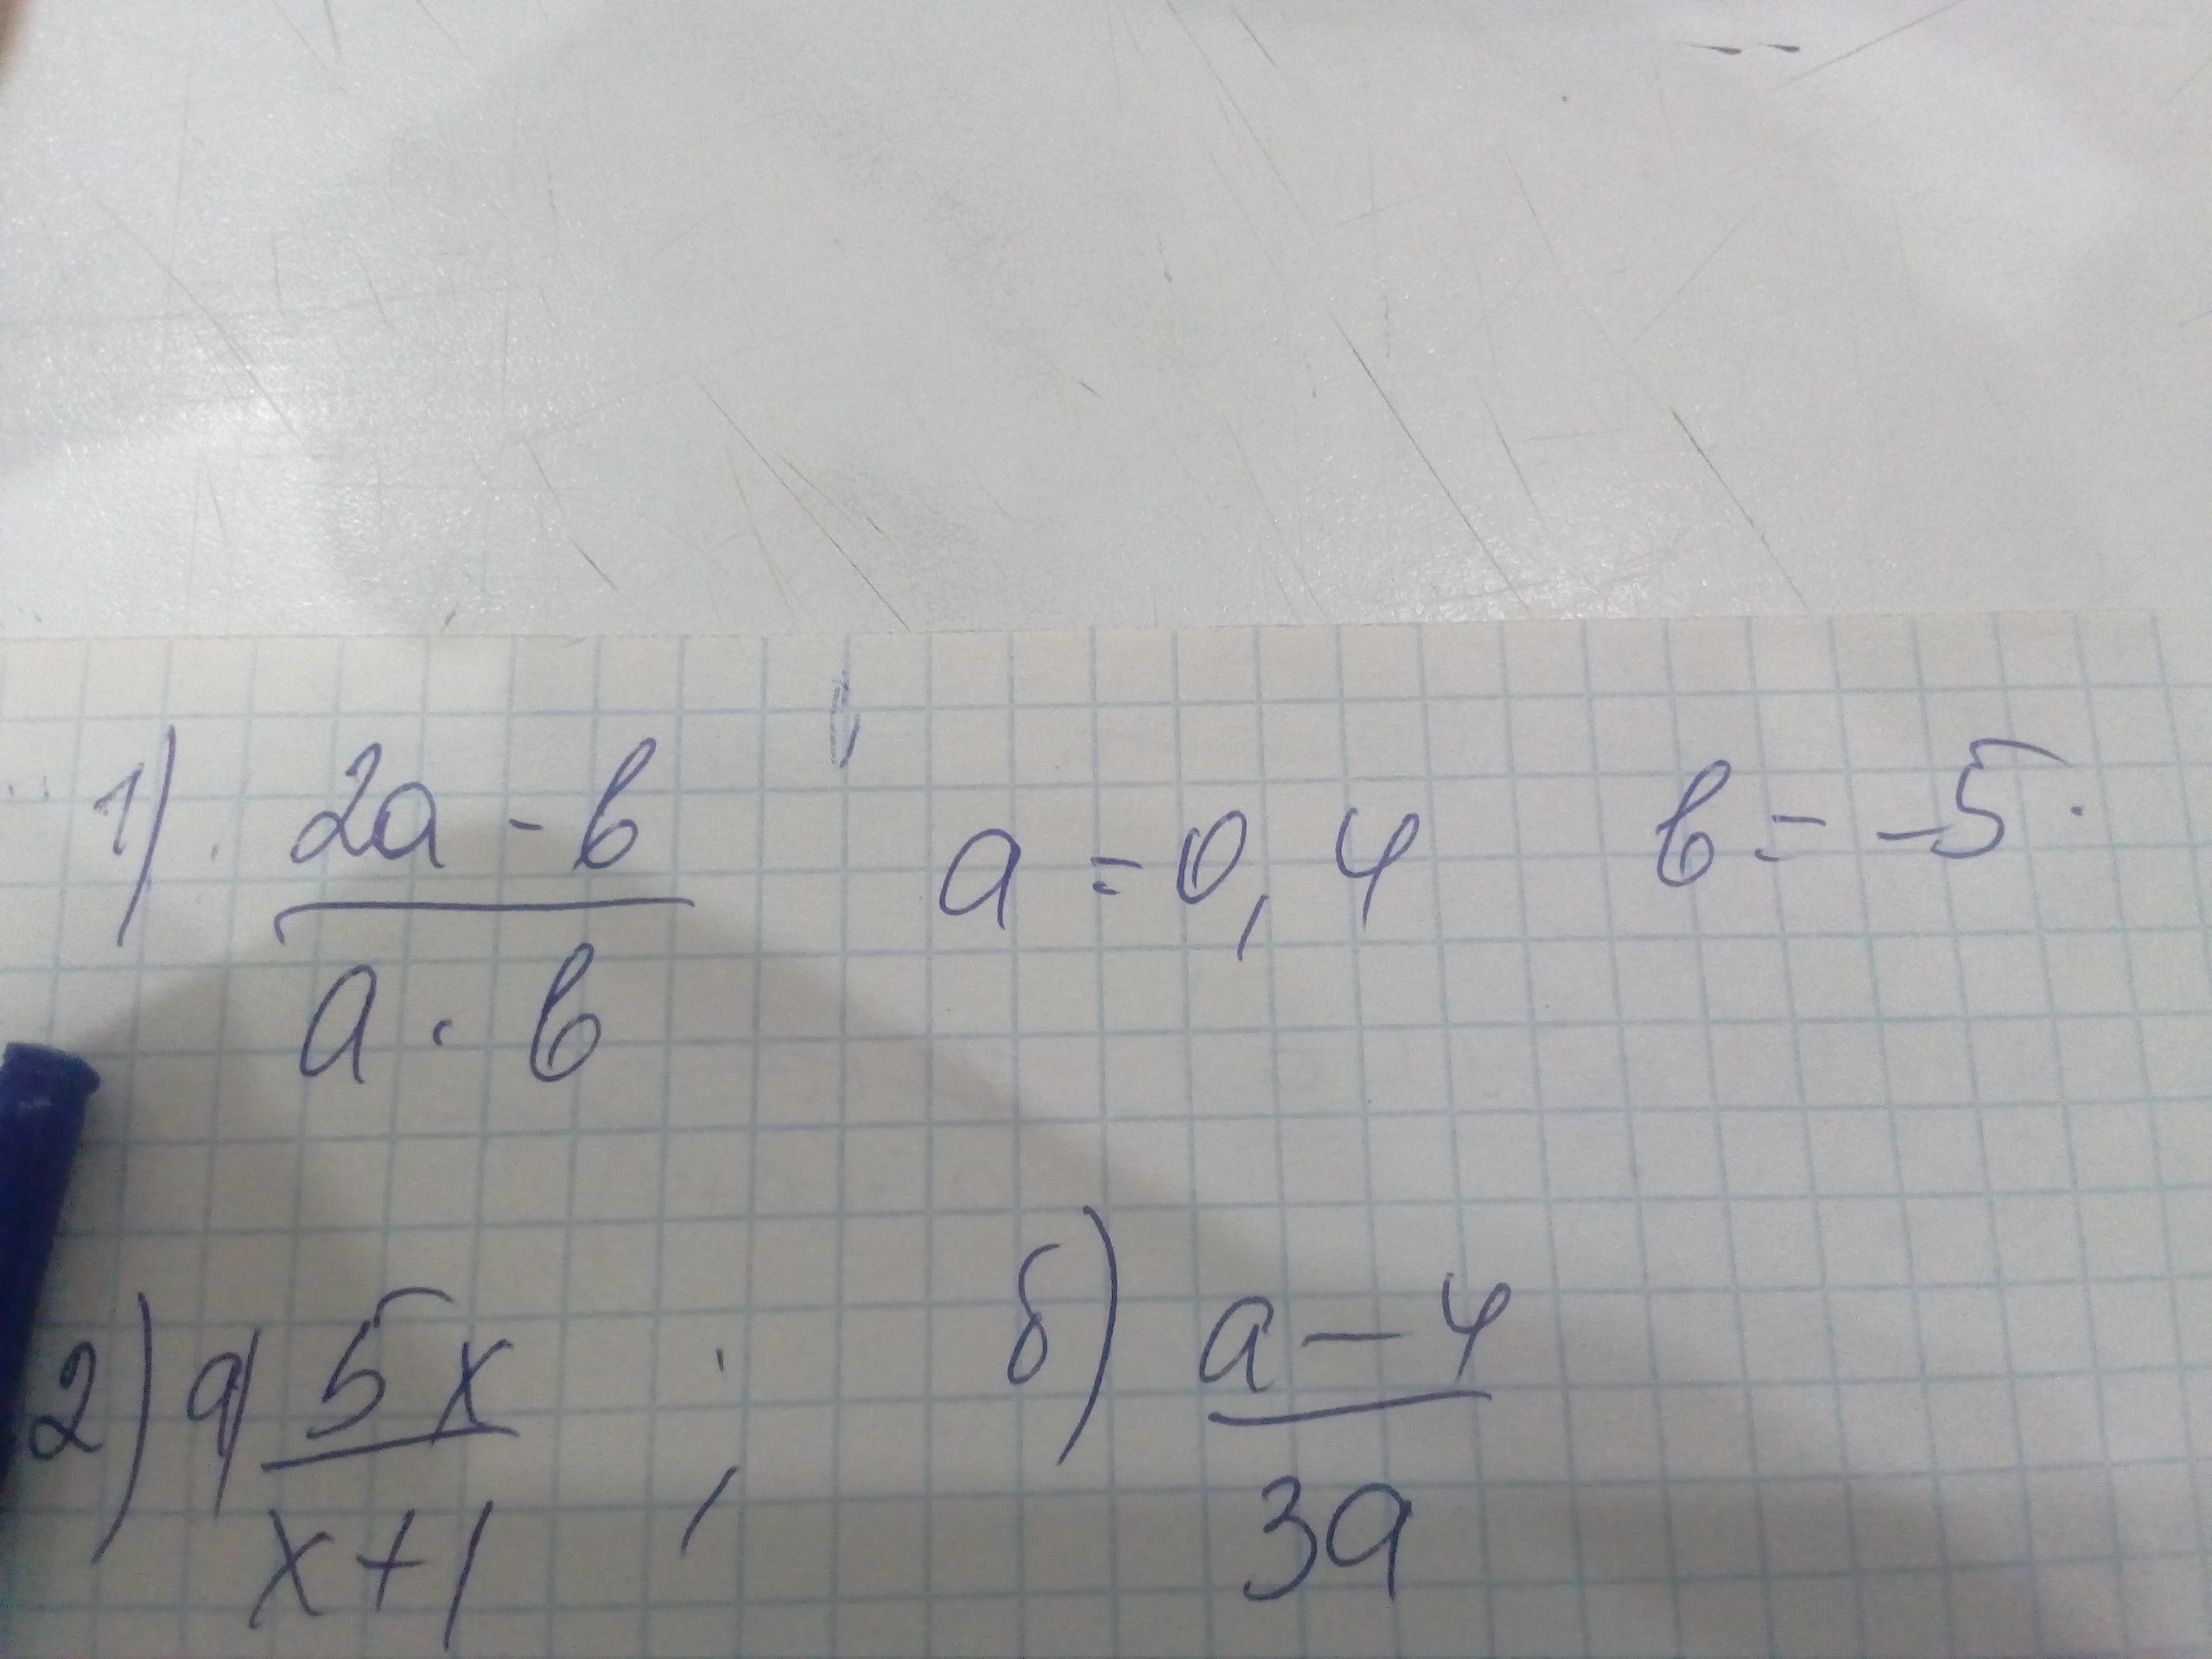 1) (2a - b)/(a · b) a = 0,4 b = -5.
2) а) 5x/(x+1) ; б) (a - 4)/(3a)